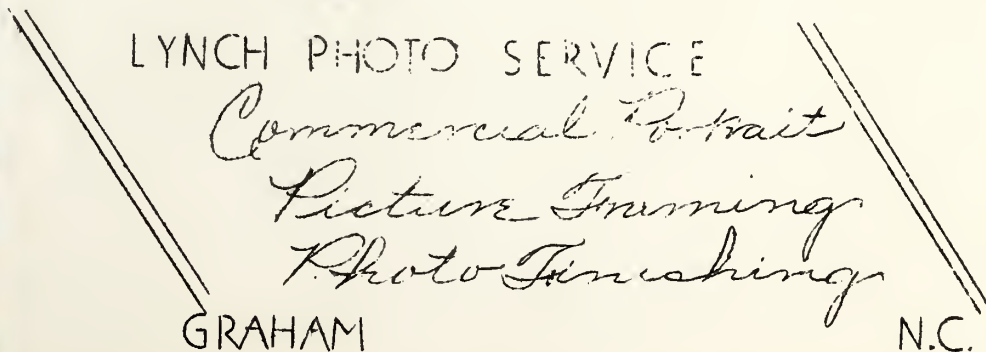 LYNCH PHOTO SERVICE
Commercial Portrait
Picture Framing
Photo Finishing
GRAHAM N.C.